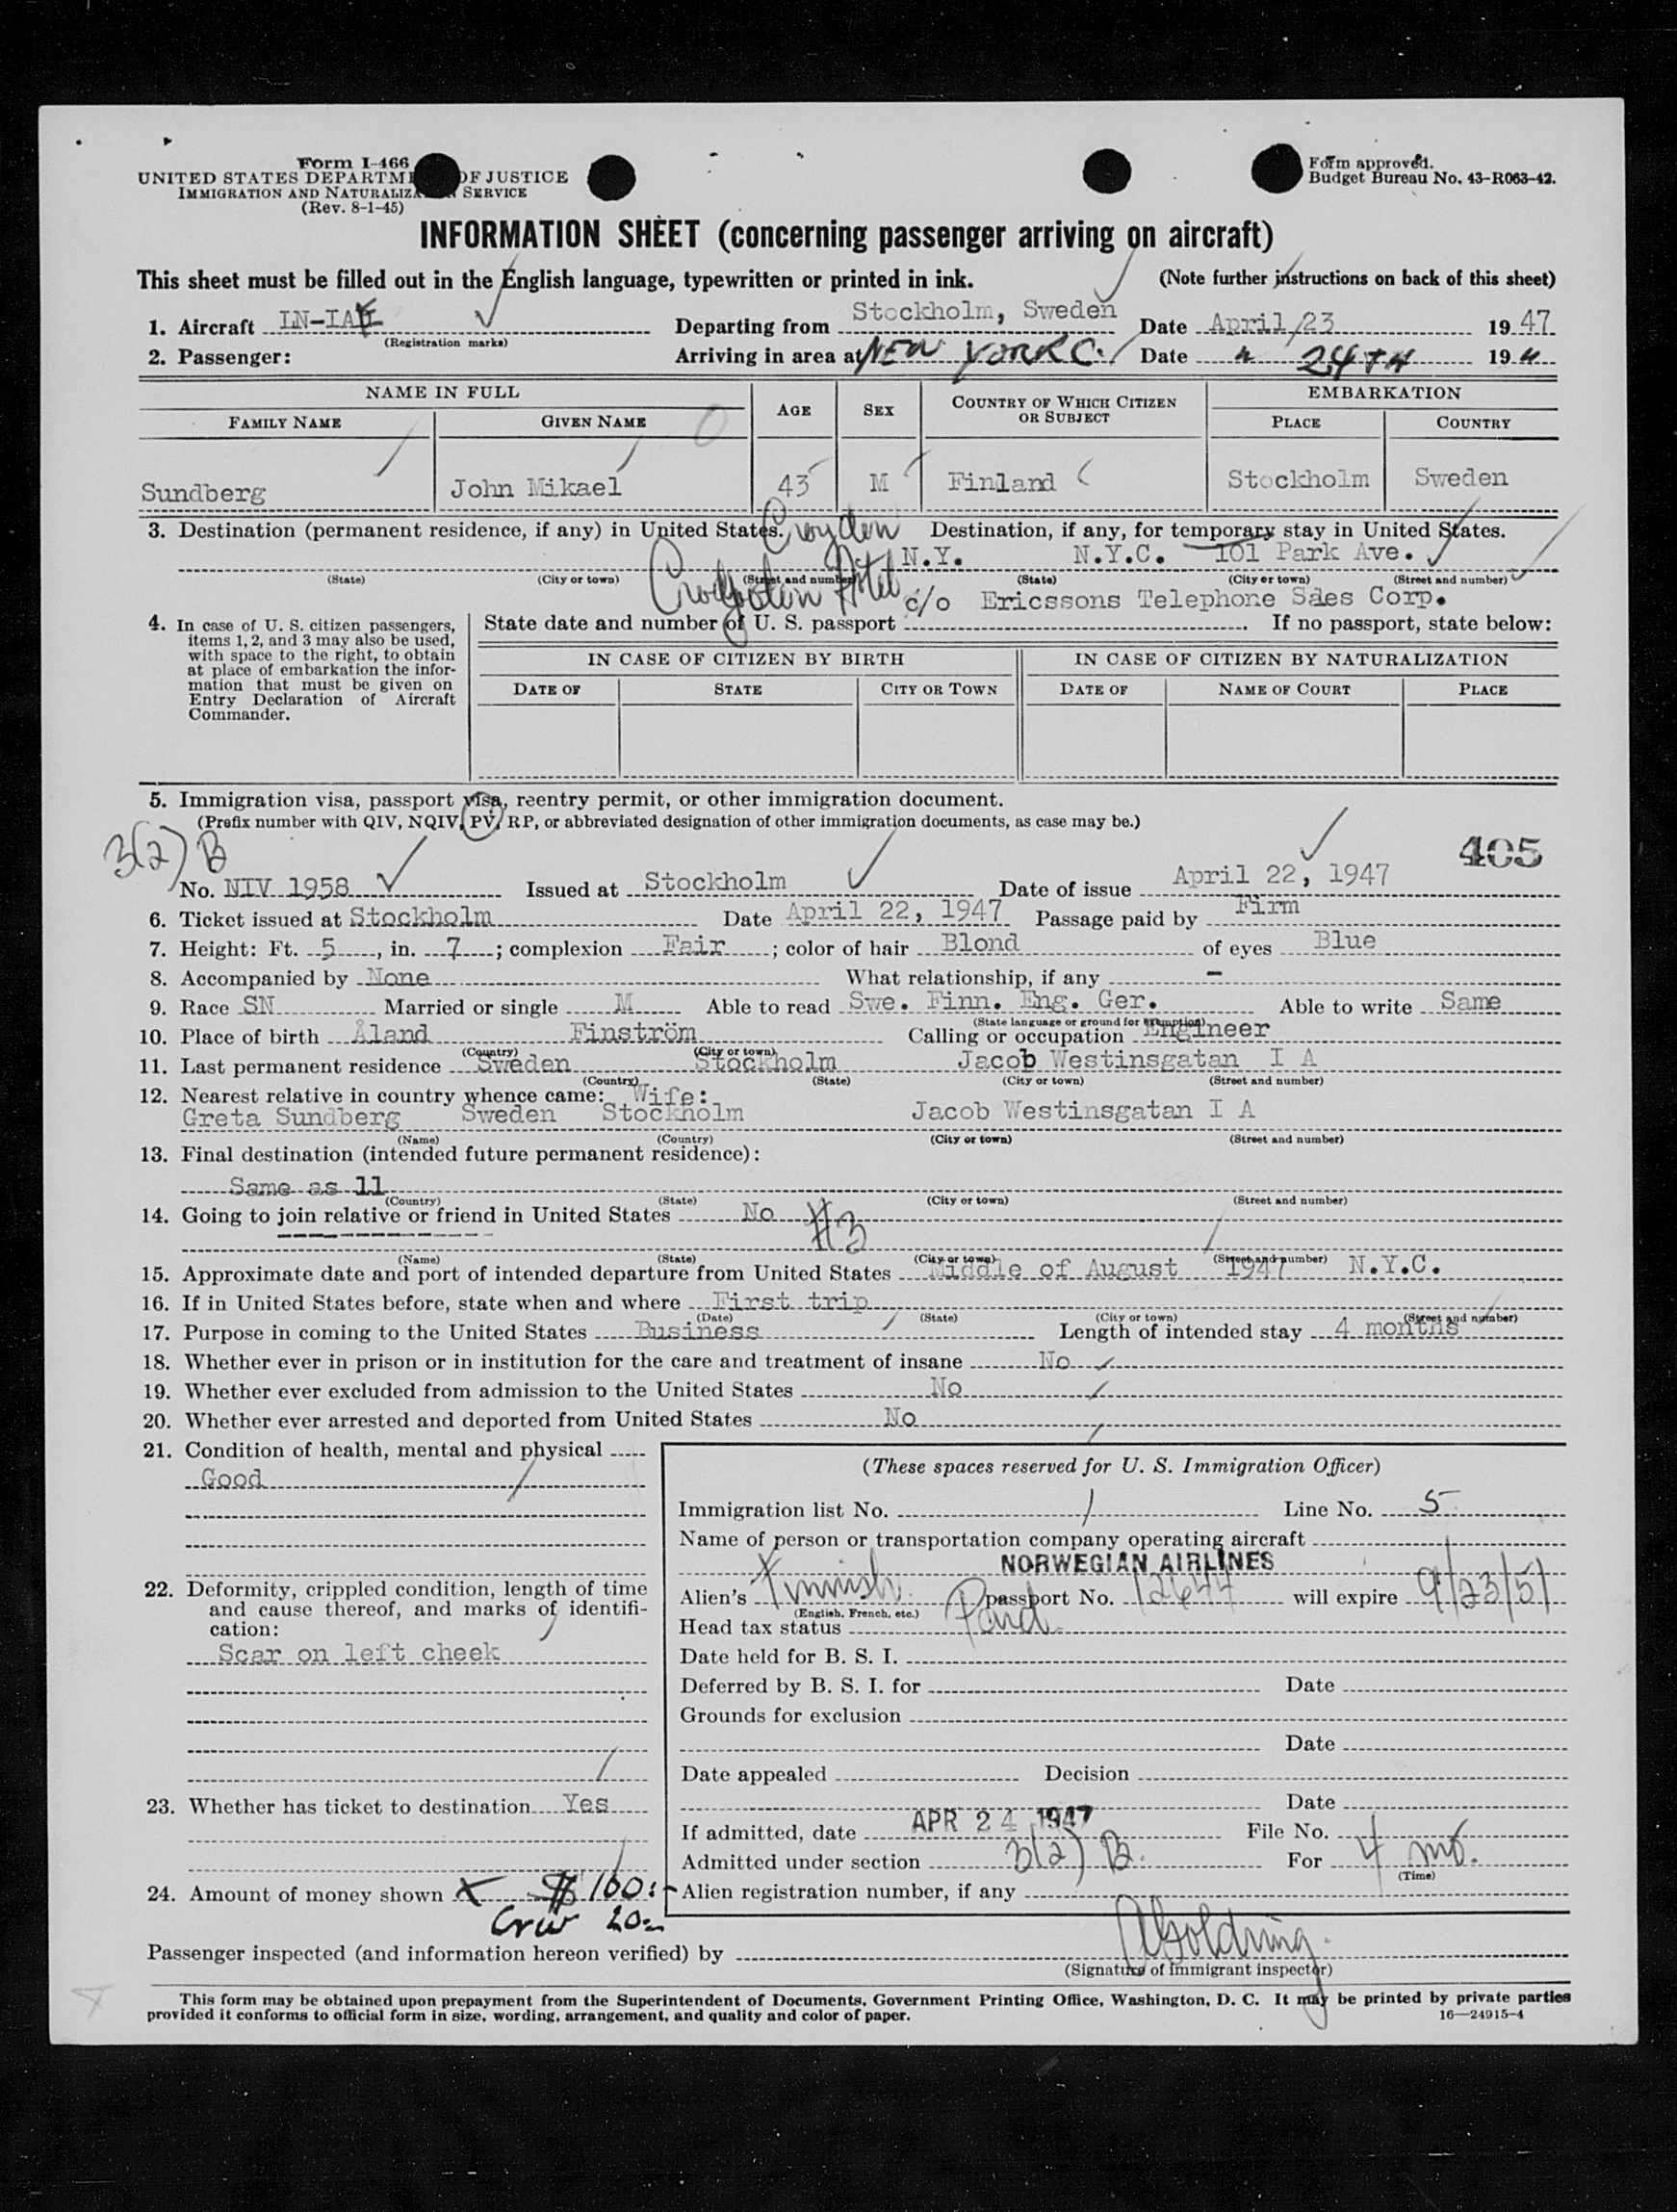 Form I-466
UNITED STATES DEPARTM OF JUSTICE
IMMIGRATION AND NATURALIZA SERVICE
(Rev. 8-1-45)
Form approved.
Budget Bureau No. 43-R063-42.
INFORMATION SHEET (concerning passenger arriving on aircraft)
This sheet must be filled out in the English language, typewritten or printed in ink. (Note further instructions on back of this sheet)
1. Aircraft LN-IA Departing from Stockholm, Sweden Date April 23 1947
(Registration marks)
2. Passenger: Arriving in area at NEW YORK C. Date " 24TH 19 "
NAME IN FULL AGE SEX COUNTRY OF WHICH CITIZEN OR SUBJECT EMBARKATION
FAMILY NAME GIVEN NAME PLACE COUNTRY
Sundberg John Mikael 43 M Finland Stockholm Sweden
3. Destination (permanent residence, if any) in United States. Croydon Destination, if any, for temporary stay in United States.
N.Y. N.Y.C. 101 Park Ave.
(State) (City or town) (Street and number) (State) (City or town) (Street and number)
Hotel c/o Ericssons Telephone Sales Corp.
4. In case of U. S. citizen passengers, items 1, 2, and 3 may also be used, with space to the right, to obtain at place of embarkation the information that must be given on Entry Declaration of Aircraft Commander.
State date and number of U. S. passport . If no passport, state below:
IN CASE OF CITIZEN BY BIRTH IN CASE OF CITIZEN BY NATURALIZATION
DATE OF STATE CITY OR TOWN DATE OF NAME OF COURT PLACE
5. Immigration visa, passport visa, reentry permit, or other immigration document.
(Prefix number with QIV, NQIV, PV, RP, or abbreviated designation of other immigration documents, as case may be.)
3(2) B 405
No. NIV 1958 Issued at Stockholm Date of issue April 22, 1947
6. Ticket issued at Stockholm Date April 22, 1947 Passage paid by Firm
7. Height: Ft. 5, in. 7; complexion Fair; color of hair Blond of eyes Blue
8. Accompanied by None What relationship, if any -
9. Race SN Married or single M Able to read Swe. Finn. Eng. Ger. Able to write Same
(State language or ground for exemption)
10. Place of birth Åland Finström Calling or occupation Engineer
(Country) (City or town)
11. Last permanent residence Sweden Stockholm Jacob Westinsgatan I A
(Country) (State) (City or town) (Street and number)
12. Nearest relative in country whence came: Wife:
Greta Sundberg Sweden Stockholm Jacob Westinsgatan I A
(Name) (Country) (City or town) (Street and number)
13. Final destination (intended future permanent residence):
Same as 11
(Country) (State) (City or town) (Street and number)
14. Going to join relative or friend in United States No #3
(Name) (State) (City or town) (Street and number)
15. Approximate date and port of intended departure from United States Middle of August 1947 N.Y.C.
16. If in United States before, state when and where First trip
(Date) (State) (City or town) (Street and number)
17. Purpose in coming to the United States Business Length of intended stay 4 months
18. Whether ever in prison or in institution for the care and treatment of insane No
19. Whether ever excluded from admission to the United States No
20. Whether ever arrested and deported from United States No
21. Condition of health, mental and physical
Good
22. Deformity, crippled condition, length of time and cause thereof, and marks of identification:
Scar on left cheek
23. Whether has ticket to destination Yes
24. Amount of money shown $ 100:-
20:-
(These spaces reserved for U. S. Immigration Officer)
Immigration list No. 1 Line No. 5
Name of person or transportation company operating aircraft
NORWEGIAN AIRLINES
Alien's Finnish passport No. 12644 will expire 9/23/51
(English, French, etc.)
Head tax status Pand
Date held for B. S. I.
Deferred by B. S. I. for Date
Grounds for exclusion
Date
Date appealed Decision
Date
If admitted, date APR 24 1947 File No.
Admitted under section 3(2) B. For 4 mo.
(Time)
Alien registration number, if any
Passenger inspected (and information hereon verified) by
(Signature of immigrant inspector)
This form may be obtained upon prepayment from the Superintendent of Documents, Government Printing Office, Washington, D. C. It may be printed by private parties
provided it conforms to official form in size, wording, arrangement, and quality and color of paper. 16—24915-4